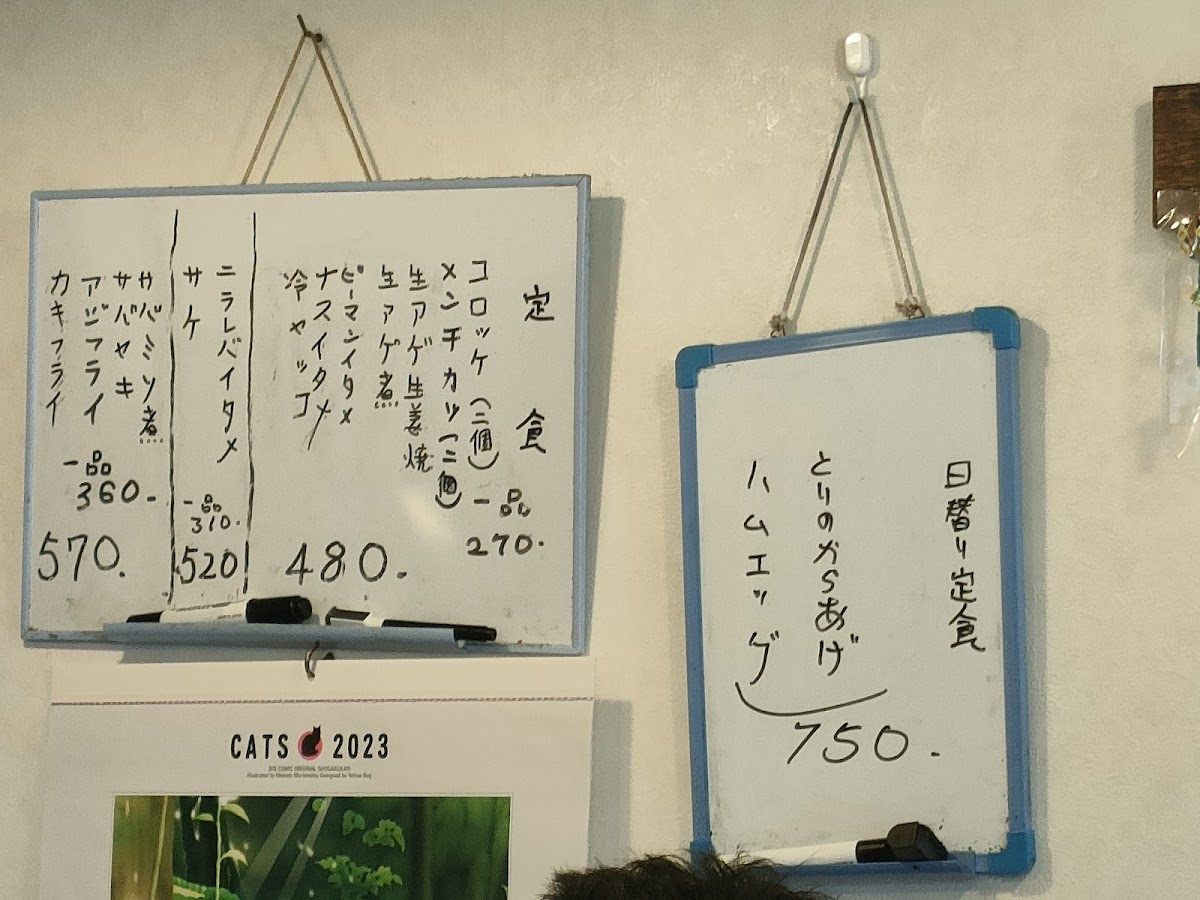 定食
コロッケ(二個)
メンチカツ(二個)
一品
270.
生アゲ生姜焼
生アゲ煮
ピーマンイタメ
ナスイタメ
冷ヤッコ
480.
ニラレバイタメ
サケ
一品
310.
520
サバミソ煮
サバヤキ
アジフライ
カキフライ
一品
360.
570.
日替り定食
とりのからあげ
ハムエッグ
750.
CATS 2023